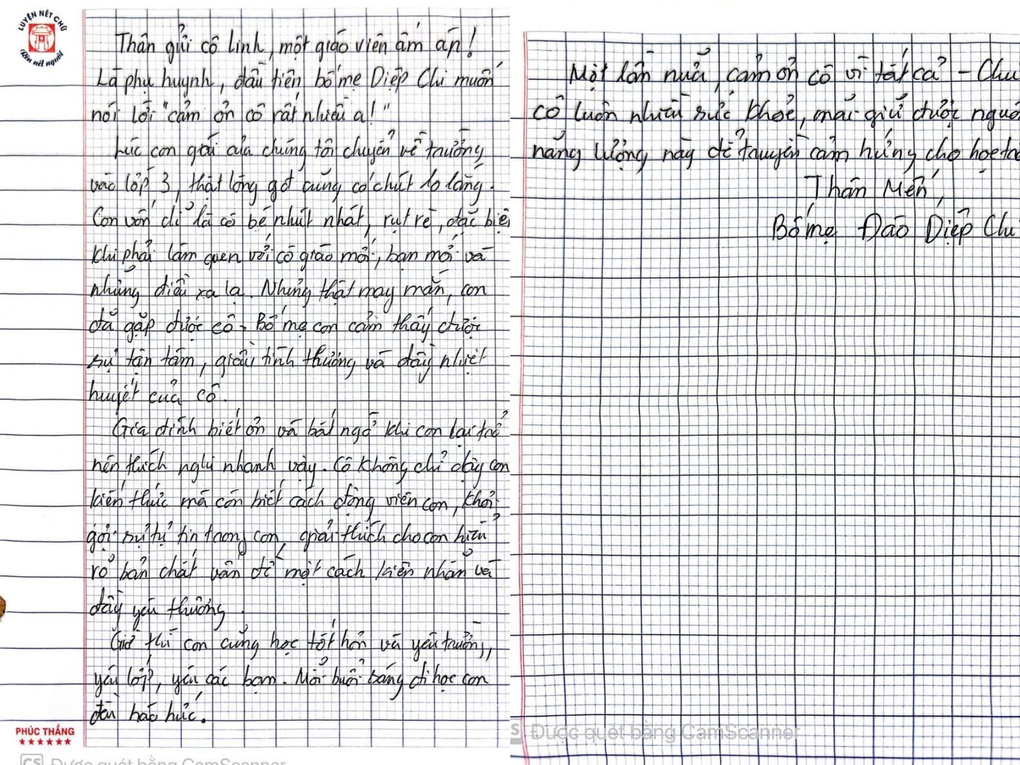 LUYỆN NÉT CHỮ
Rèn nết người
Thân gửi cô Linh, một giáo viên ấm áp!
Là phụ huynh, đầu tiên bố mẹ Diệp Chi muốn
nói lời "cảm ơn cô rất nhiều ạ!"
Lúc con gái của chúng tôi chuyển về trường
vào lớp 3, thật lòng gđ cũng có chút lo lắng.
Con vốn dĩ là cô bé nhút nhát, rụt rè, đặc biệ
khi phải làm quen với cô giáo mới, bạn mới và
những điều xa lạ. Nhưng thật may mắn, con
đã gặp được cô. Bố mẹ con cảm thấy được
sự tận tâm, giàu tình thương và đầy nhiệt
huyết của cô.
Gia đình biết ơn và bất ngờ khi con lại trở
nên thích nghi nhanh vậy. Cô không chỉ dạy con
kiến thức mà còn biết cách động viên con, khơi
gợi sự tự tin trong con, giải thích cho con hiểu
rõ bản chất vấn đề một cách kiên nhẫn và
đầy yêu thương.
Giờ thì con cũng học tốt hơn và yêu trường,
yêu lớp, yêu các bạn. Mỗi buổi sáng đi học con
đều háo hức.
PHÚC THẮNG
CS Được quét bằng CamScanner
Một lần nữa, cảm ơn cô vì tất cả - Chú
cô luôn nhiều sức khoẻ, mãi giữ được nguồ
năng lượng này để truyền cảm hứng cho học trò
Thân Mến,
Bố mẹ Đào Diệp Chi
S Được quét bằng CamScanner